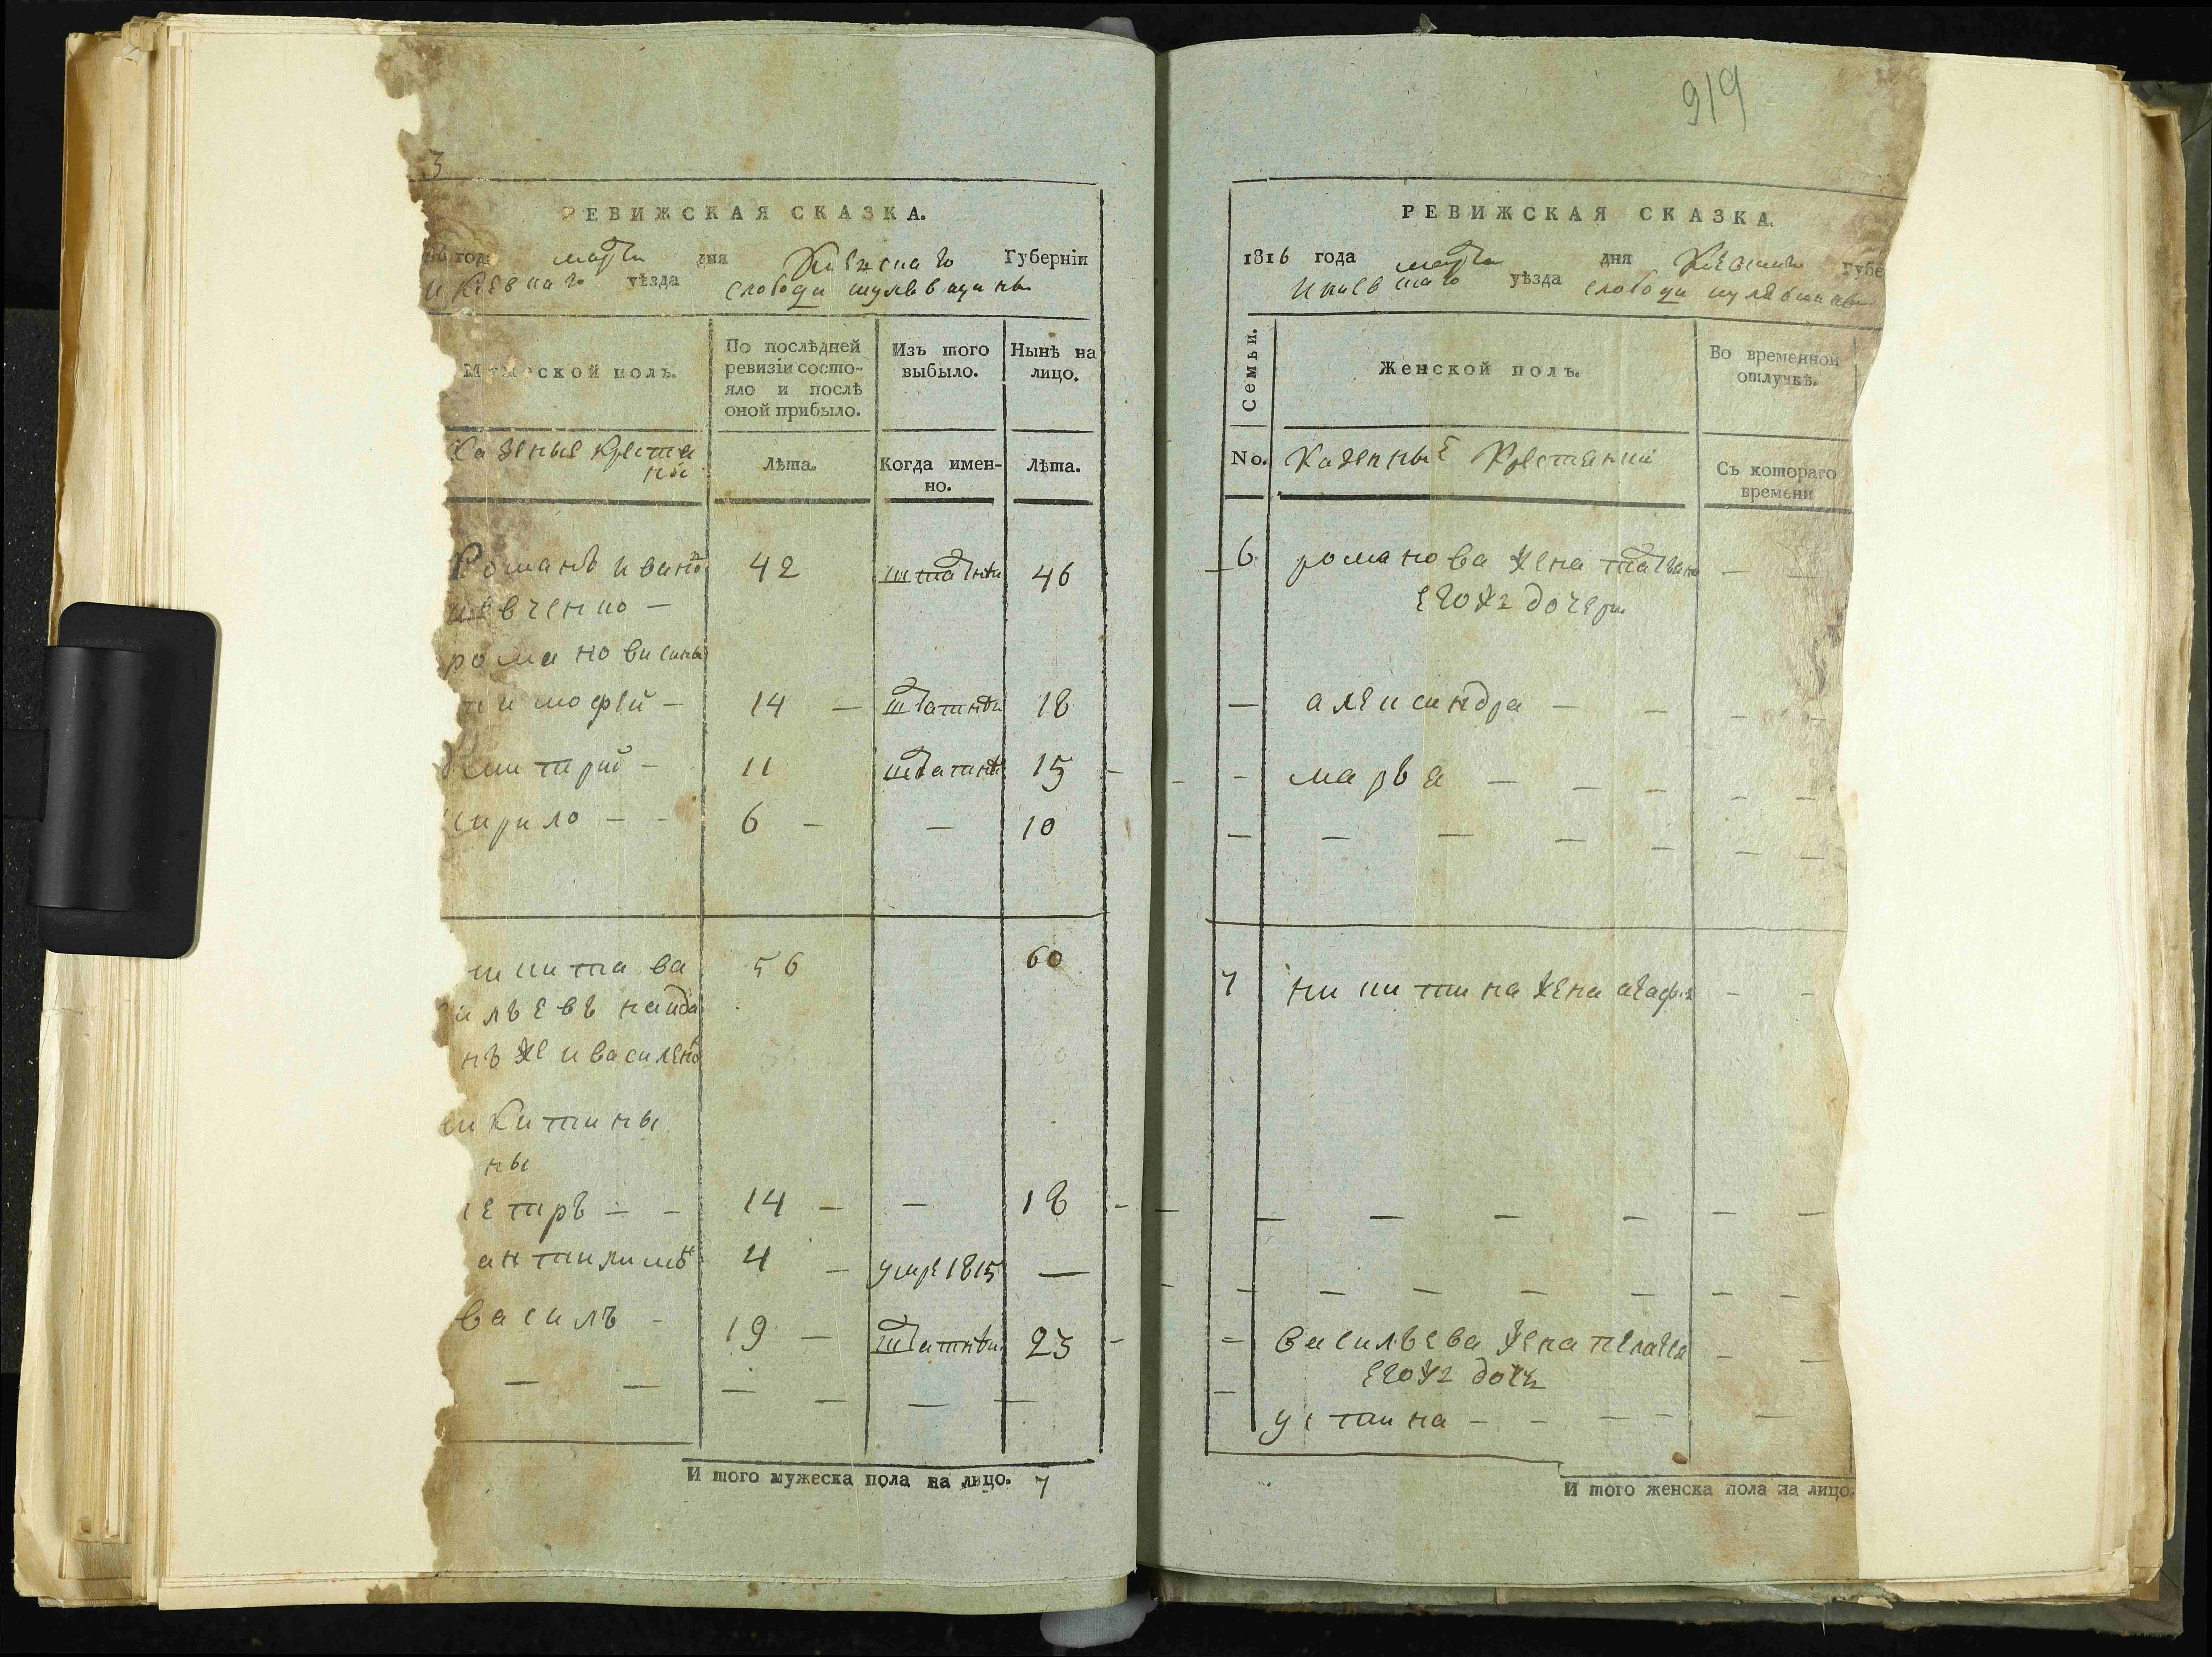 3
РЕВИЖСКАЯ СКАЗКА.
16 года марта дня Киевскаго Губерніи
и Киевскаго уѣзда слободи шулѣвщины
Мужеской полъ.
По послѣдней ревизіи состояло и послѣ оной прибыло.
Изъ того выбыло.
Нынѣ на лицо.
Казеные крестя
ни
Лѣта.
Когда именно.
Лѣта.
Романъ ивано 42 46
шевченко —
романови сины
тимофей — 14 — 18
дмитрий — 11 15
кирило — — 6 — — 10
никита ва 56 60
силъевъ
нъ же и василен
никитины
ны
петръ — — 14 — — 18
4 — умре 1815 —
василъ — 19 — 23
— — — — — —
И того мужеска пола на лицо. 7
919
РЕВИЖСКАЯ СКАЗКА.
1816 года марта дня Киевскаго Губе
и киевскаго уѣзда слободи шулѣвщины
Семьи.
Женской полъ.
Во временной отлучкѣ.
No.
Казенные Крестянки
Съ котораго времени
6 романова жена татияна — —
егожъ дочери
— александра — — — —
— марѳа — — — — —
— — — — — — —
7 никитина жена агафия — —
— — — — — —
— — — — — — —
— василъева жена пелагея — —
— егожъ дочь
устина — — — — —
И того женска пола на лицо.